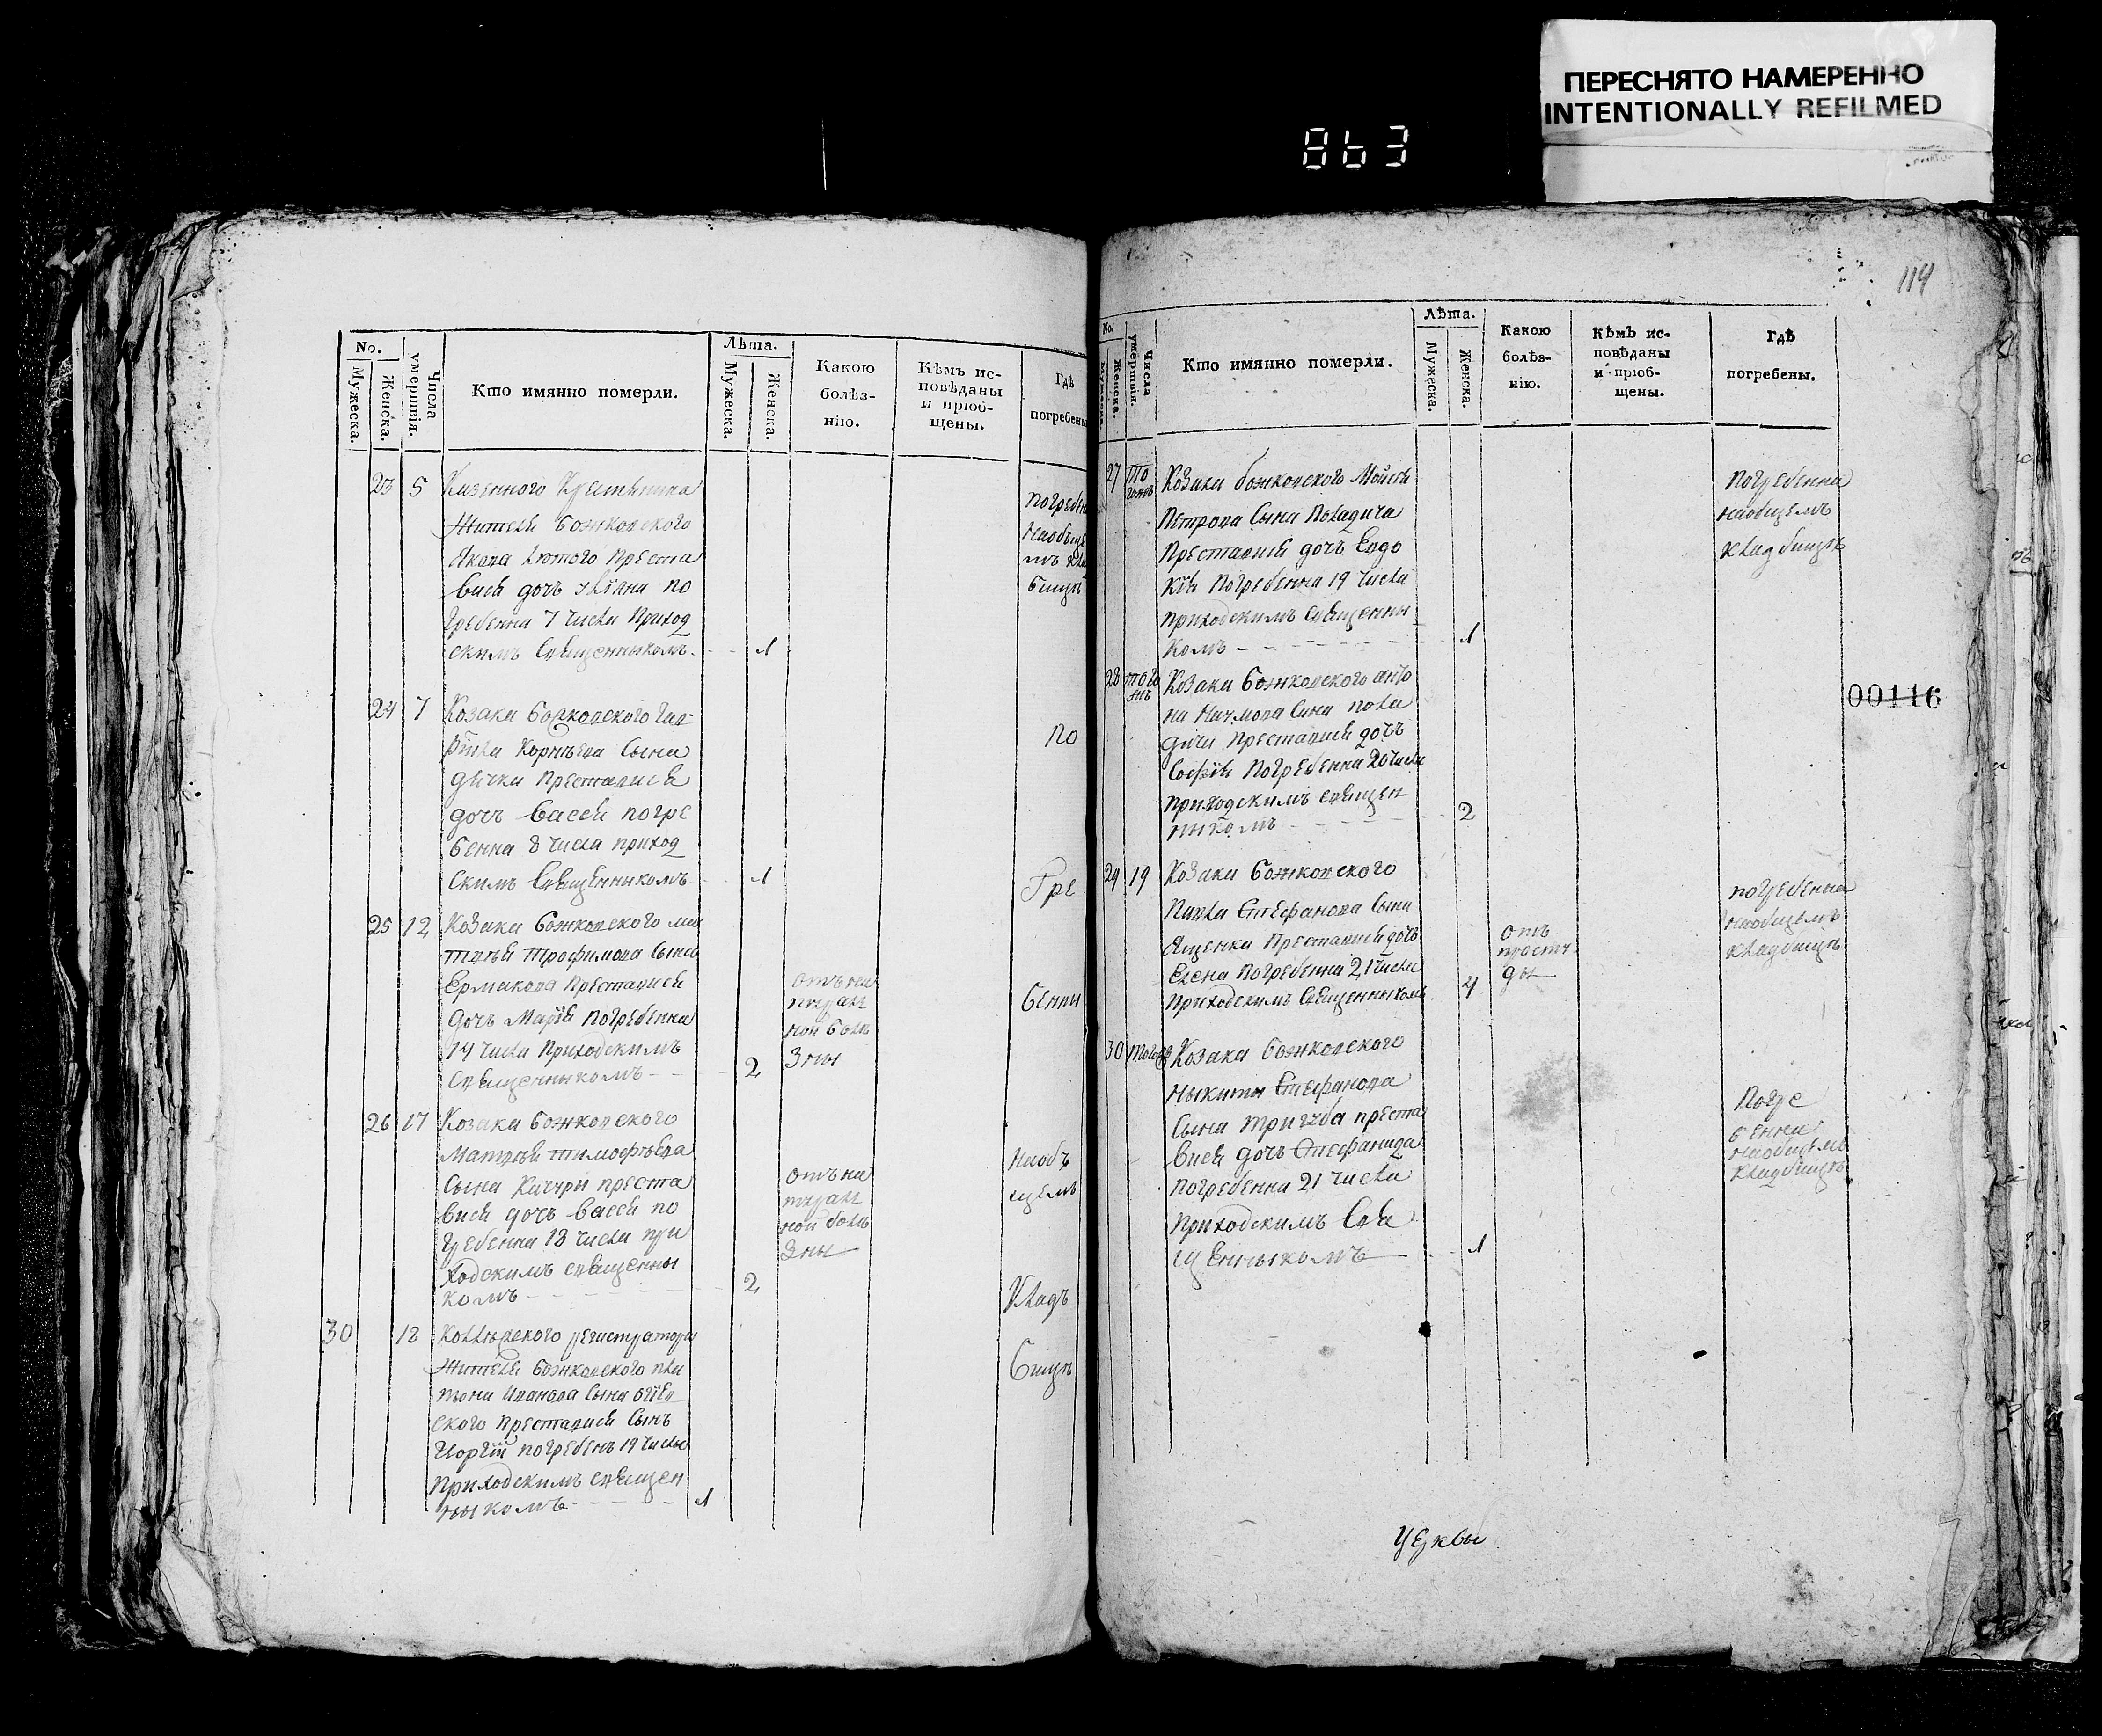 ПЕРЕСНЯТО НАМЕРЕННО
INTENTIONALLY REFILMED
863
No.
Мужеска.
Женска.
Числа умертвія.
Кто имянно померли.
Лѣта.
Мужеска.
Женска.
Какою болѣз-
нію.
Кѣмъ ис-
повѣданы
и пріоб-
щены.
Гдѣ
погребены
23 5 Казенного Крестьянина
Жителя Божковского
Якова Лютого Преста
вися дочь Улїяна по
гребенна 7 числа Приход
скимъ Священныкомъ 1
24 7 Козака Божковского Гав
рїила Корнѣева Сына
дячка Преставися
дочъ Васса погре
бенна 8 числа приход
скимъ Священныкомъ 1
25 12 Козака Божковского мат
твѣя трофимова Сына
Ермакова Преставися
дочъ Марїя Погребенна
14 числа Приходскимъ
Священныкомъ 2
отъ на
турал
ной болѣ
зны
26 17 Козака Божковского
Матвѣя тимофѣева
Сына Качури преста
вися дочъ Васса по
гребенна 18 числа при
ходскимъ священны
комъ 2
отъ на
турал
ной болѣ
зны
30 18 Коллѣжского регистратора
Жителя Божковского пла
тона Иванова Сына
ского Преставися Сынъ
Георгїй погребенъ 19 числа
Приходскимъ священ
ныкомъ 1
По
гре
бенны
на объ
щемъ
Кладъ
бищѣ
114
No.
Мужеска.
Женска.
Числа умертвія.
Кто имянно померли.
Лѣта.
Мужеска.
Женска.
Какою
болѣз-
нію.
Кѣмъ ис-
повѣданы
и пріоб-
щены.
Гдѣ
погребены.
27 то
гожъ Козака божковского Мойсѣя
Петрова Сына Поладича
Преставися дочъ Евдо
кїя Погребенна 19 числа
приходскимъ священны
комъ 1
Погребенна
на общемъ
кладбищѣ
28 того
жъ Козака Божковского анто
на Наумова Сина пола
дича Преставися дочъ
Софїя Погребенна 20 числа
приходскимъ священ
ныкомъ 2
00116
29 19 Козака Божковского
Павла Стефанова Сына
Ященка Преставися дочъ
Елена Погребенна 21 числа
Приходскимъ Священныкомъ 4
отъ
просту
ды
погребенна
на общемъ
кладбищѣ
30 тогожъ Козака Божковского
Ныкиты Стефанова
Сына тригуба преста
вися дочъ Стефанида
погребенна 21 числа
Приходскимъ Свя
щенныкомъ 1
Погре
бенна
на общемъ
кладбищѣ
Церквы